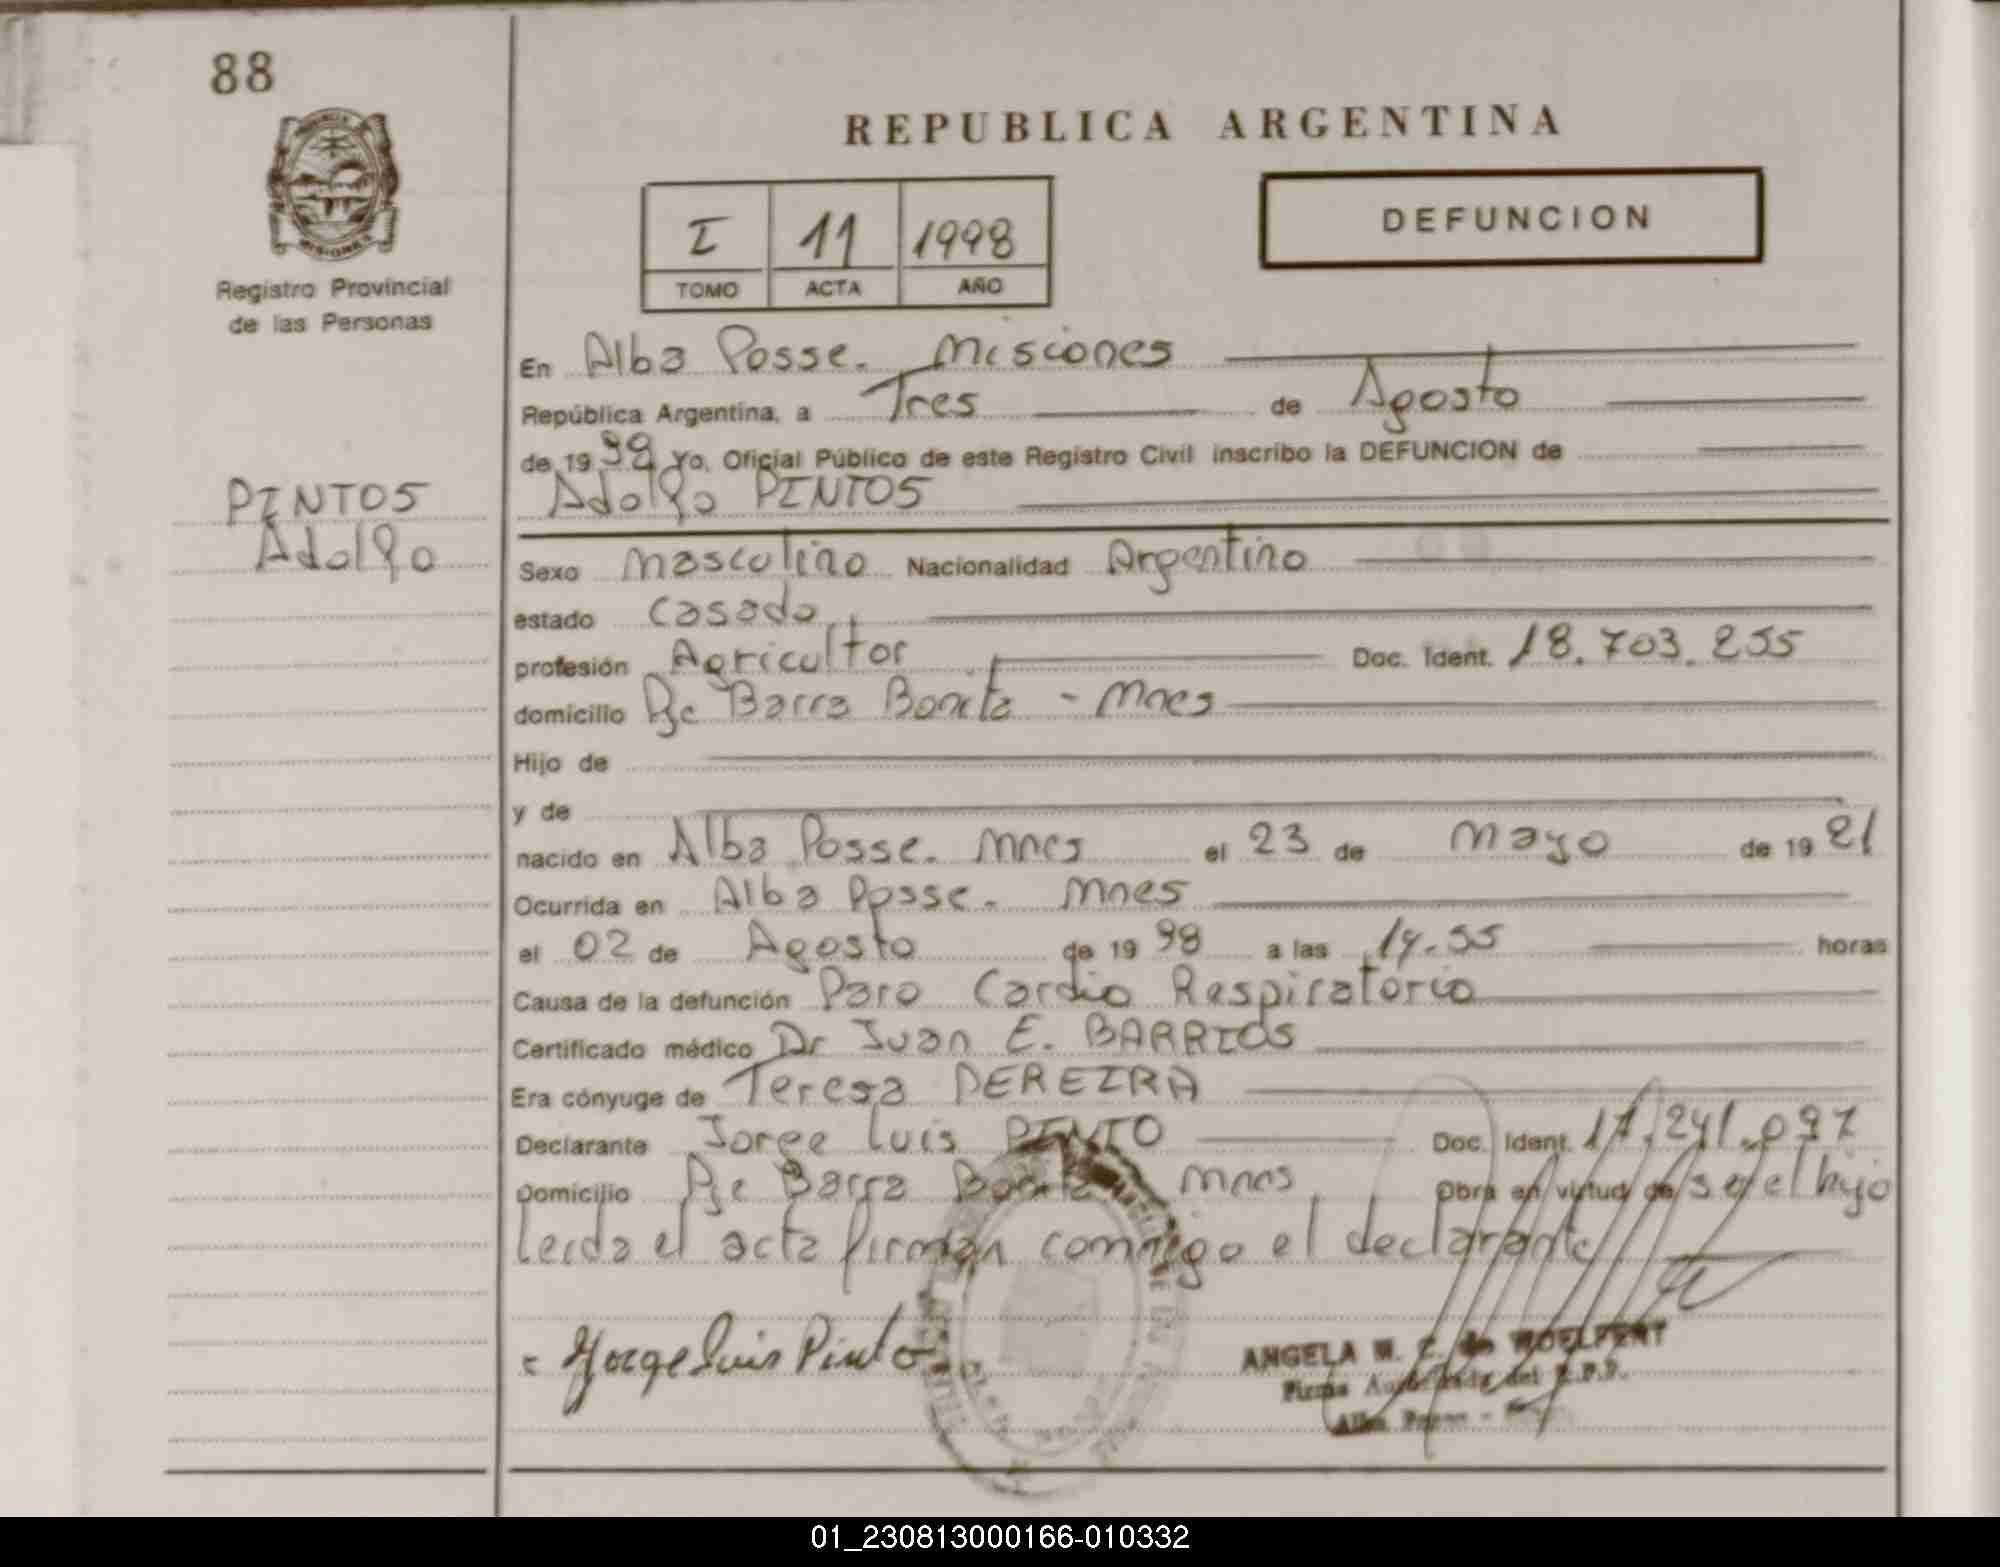 88
REPUBLICA ARGENTINA
I 11 1998
TOMO ACTA AÑO
DEFUNCION
MISIONES
Registro Provincial
de las Personas
En Alba Posse. Misiones
República Argentina, a Tres de Agosto
de 1998 Yo, Oficial Público de este Registro Civil inscribo la DEFUNCION de
Adolfo PINTOS
PINTOS
Adolfo
Sexo Masculino Nacionalidad Argentino
estado Casado
profesión Agricultor Doc. Ident. 18.703.255
domicilio Pje Barra Bonita - Mnes
Hijo de
y de
nacido en Alba Posse. Mnes el 23 de Mayo de 1921
Ocurrida en Alba Posse. Mnes
el 02 de Agosto de 1998 a las 14.55 horas
Causa de la defunción Paro Cardio Respiratorio
Certificado médico Dr Juan E. BARRIOS
Era cónyuge de Teresa PEREIRA
Declarante Jorge Luis PINTO Doc. Ident. 17.241.097
Domicilio Pje Barra Bonita Mnes Obra en virtud de ser el hijo
Leida el acta firman conmigo el declarante
Jorge Luis Pinto
ANGELA M. C. de WOELFERT
Firma Autorizada del R.P.P.
Alba Posse -
01_230813000166-010332